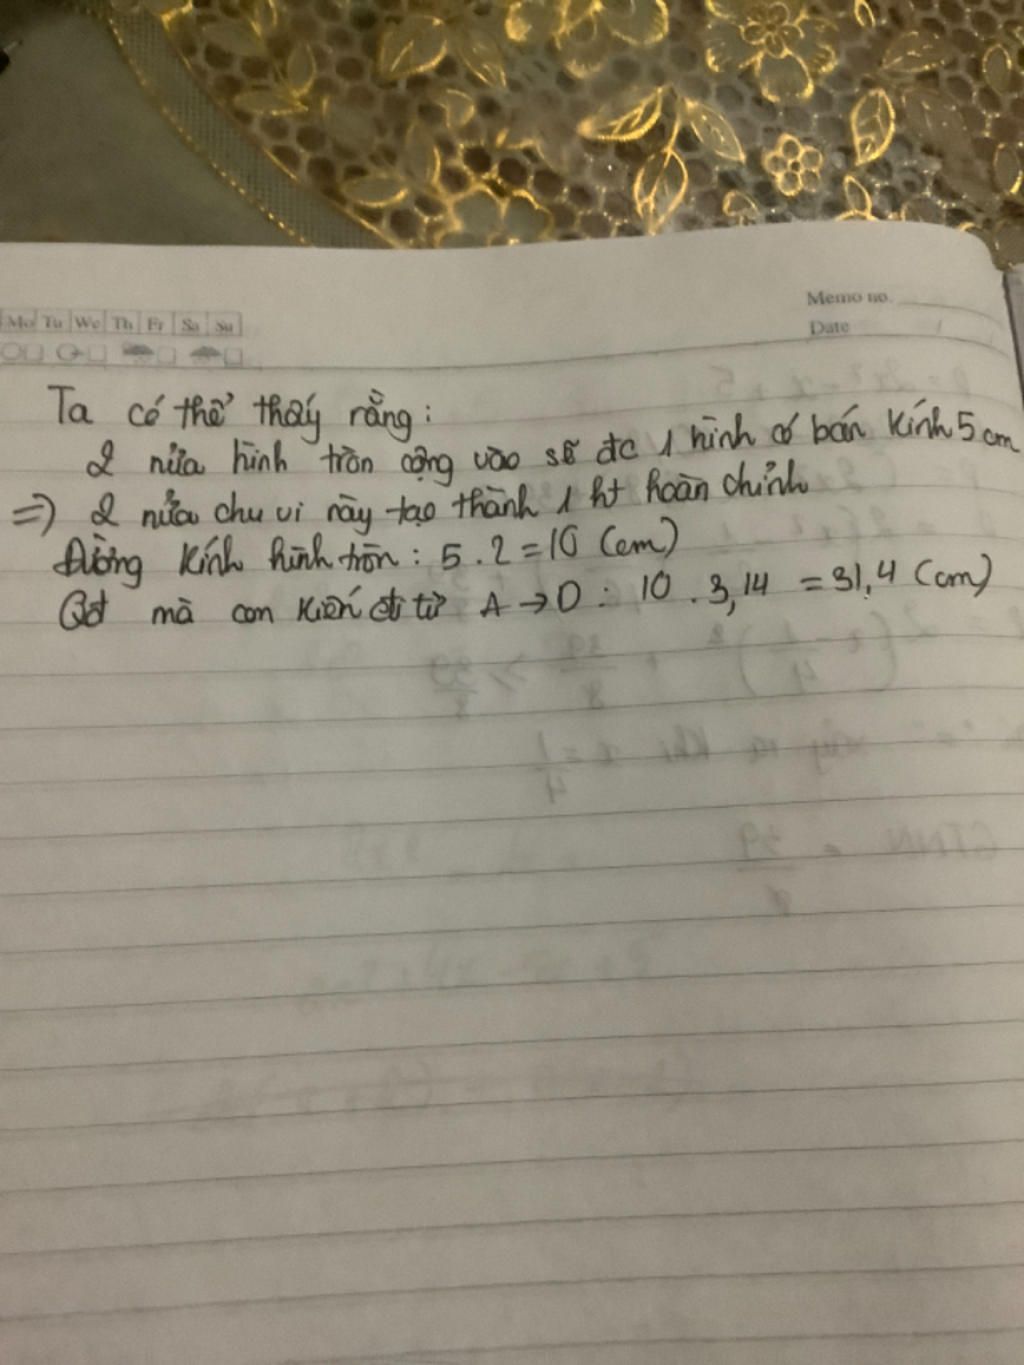 Memo no.
Mo Tu We Th Fr Sa Su
Date
Ta có thể thấy rằng:
2 nửa hình tròn cộng vào sẽ đc 1 hình có bán kính 5 cm
=> 2 nửa chu vi này tạo thành 1 ht hoàn chỉnh
Đường kính hình tròn: 5 . 2 = 10 (cm)
Qđ mà con kiến đi từ A → D : 10 . 3,14 = 31,4 (cm)